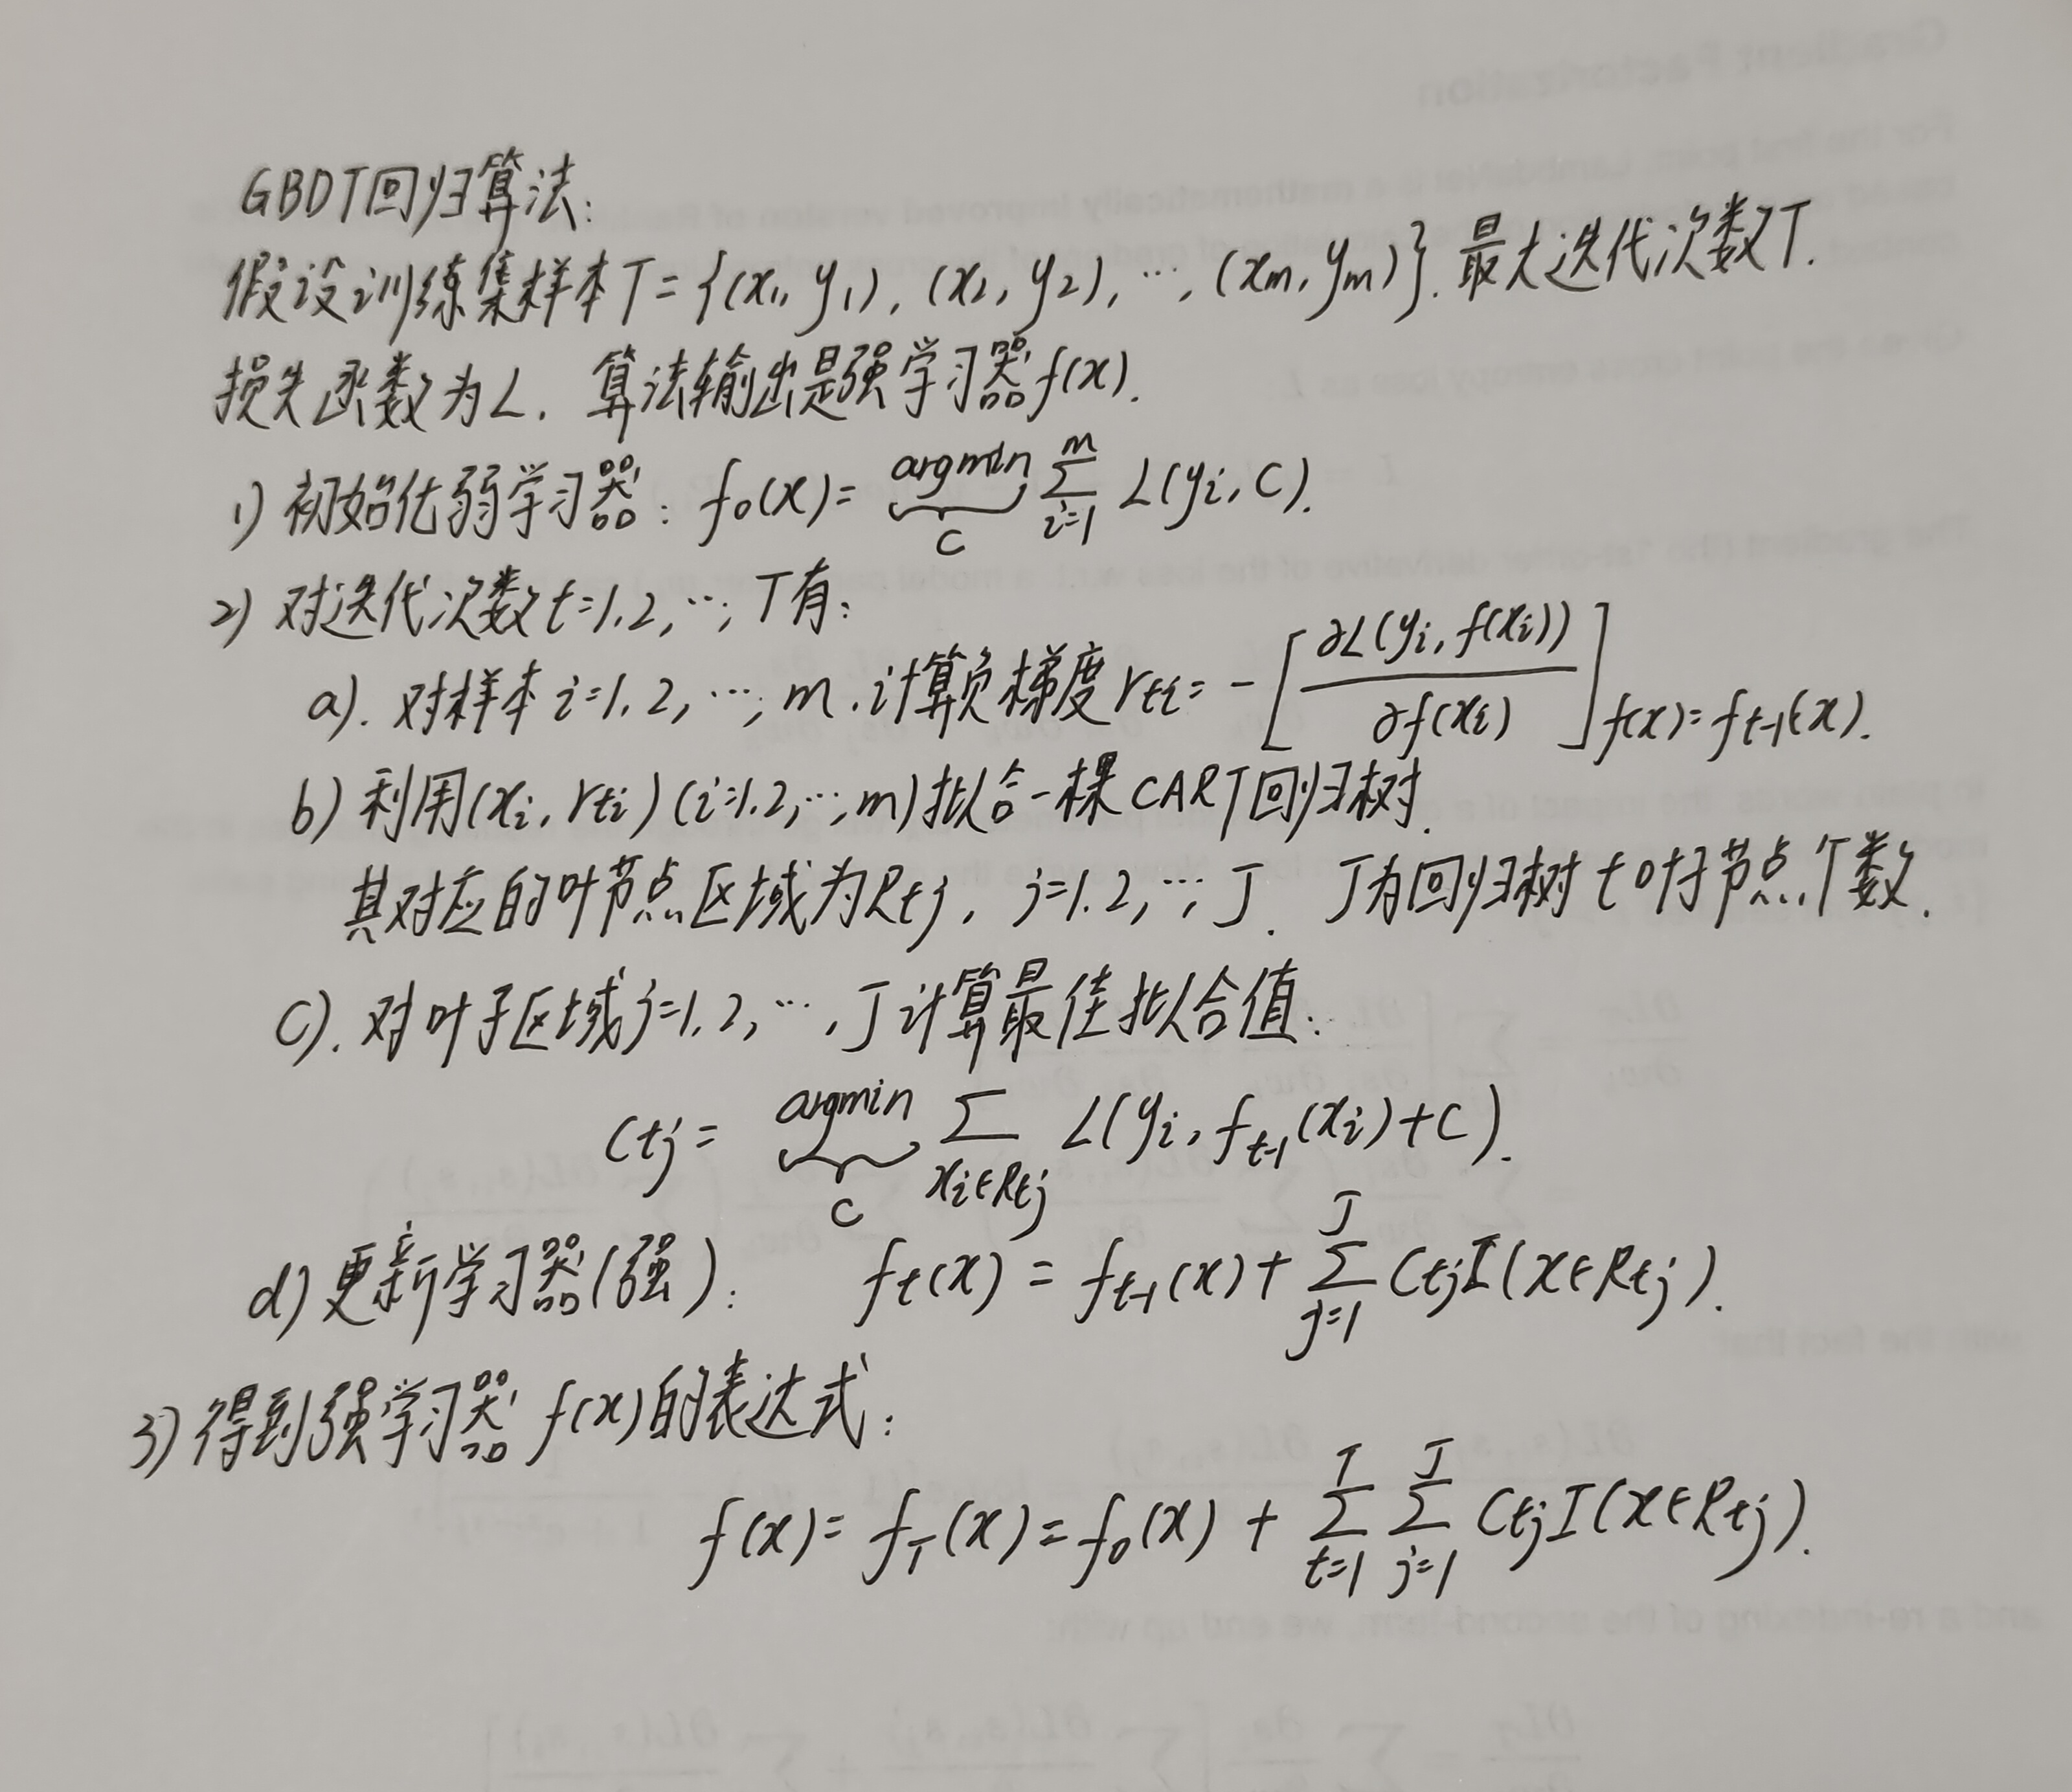 GBDT回归算法:
假设训练集样本T={(x₁,y₁),(x₂,y₂),…,(xm,ym)}.最大迭代次数T.
损失函数为L.算法输出是强学习器f(x).
1)初始化弱学习器:f₀(x)=argmin_c ∑_{i=1}^{m} L(yi,C).
2)对迭代次数t=1,2,…,T有:
a).对样本i=1,2,…,m.计算负梯度rti=-[∂L(yi,f(xi))/∂f(xi)]f(x)=f_{t-1}(x).
b)利用(xi,rti)(i=1,2,…,m)拟合一棵CART回归树.
其对应的叶节点区域为Rtj,j=1,2,…,J. J为回归树t叶子节点个数.
c).对叶子区域j=1,2,…,J计算最佳拟合值:
Ctj=argmin_c ∑_{xi∈Rtj} L(yi,f_{t-1}(xi)+C).
d)更新学习器(强):f_t(x)=f_{t-1}(x)+∑_{j=1}^{J} CtjI(x∈Rtj).
3)得到强学习器f(x)的表达式:
f(x)=f_T(x)=f₀(x)+∑_{t=1}^{T}∑_{j=1}^{J} CtjI(x∈Rtj).